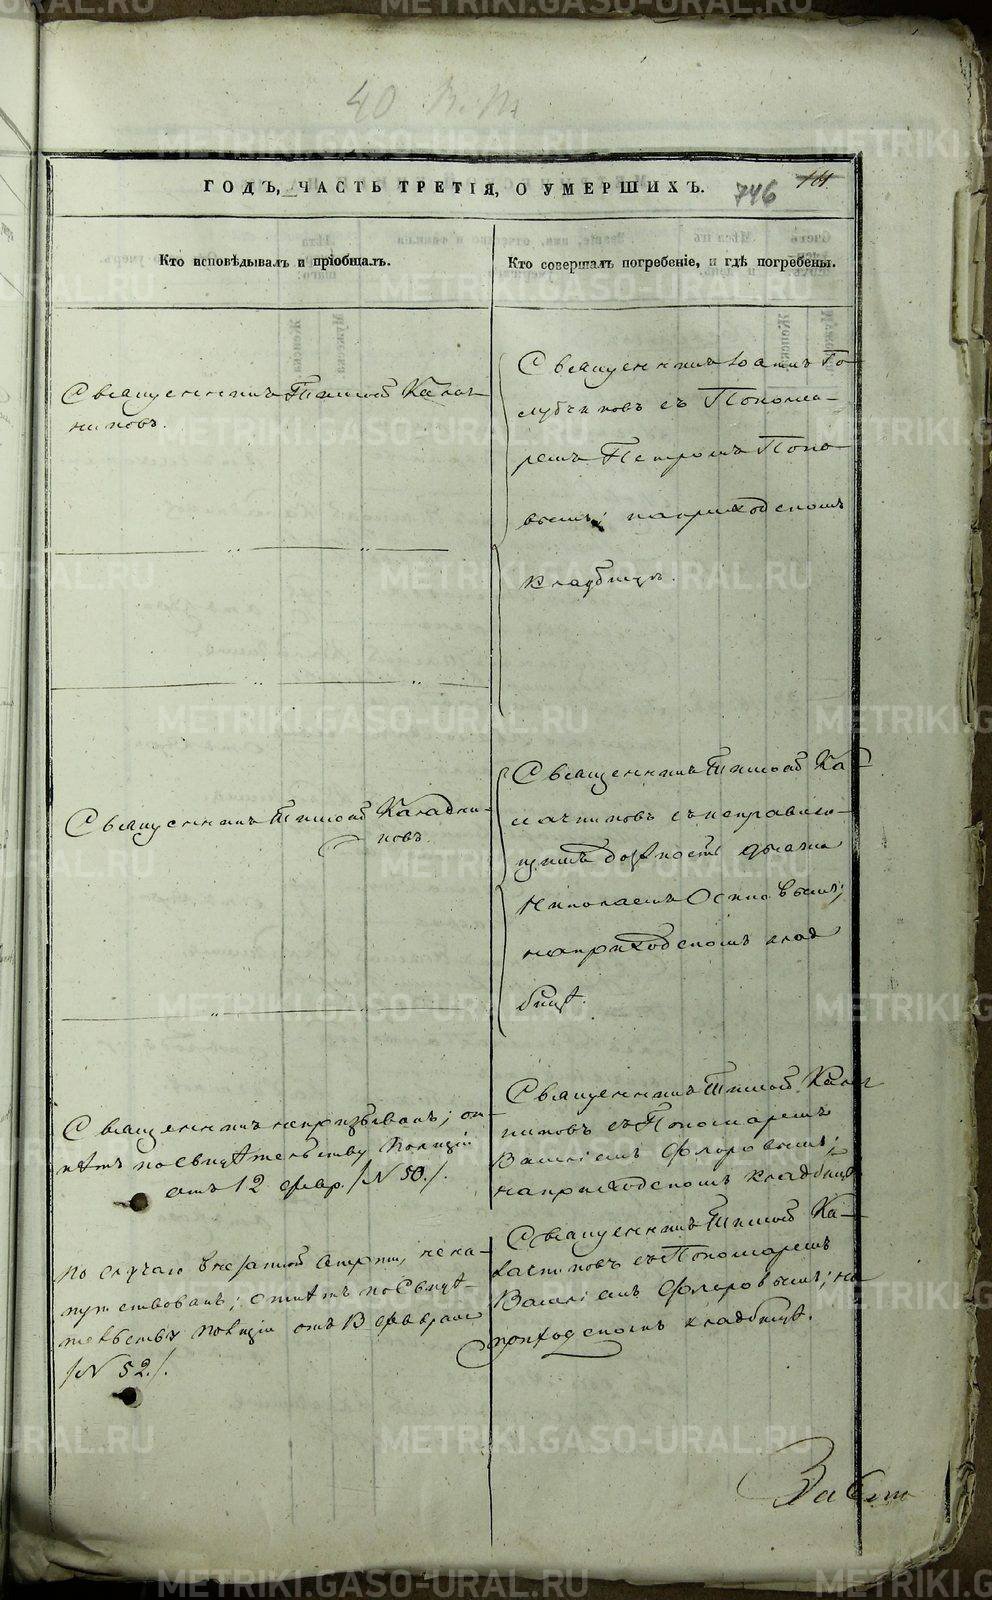 40
ГОДЪ, ЧАСТЬ ТРЕТІЯ, О УМЕРШИХЪ.
746
Кто исповѣдывалъ и пріобщалъ.
Кто совершалъ погребеніе, и гдѣ погребены.
Священникъ Тимоѳей Калаш-
никовъ.
Священникъ Іоаннъ Го-
лубчиковъ съ Понома-
ремъ Петромъ Попо-
вымъ; на приходскомъ
кладбищѣ.
Священникъ Тимоѳей
новъ.
Священникъ Тимоѳей Ка-
съ исправляю-
щимъ должность дьячка
Николаемъ Осиповымъ;
на приходскомъ клад
бищѣ.
Священникъ не призыванъ; от-
пѣтъ по свидѣтельству Полиціи
отъ 12 февр. /№ 50./.
Священникъ Тимоѳей
никовъ съ Пономаремъ
Василіемъ Флоровымъ;
на приходскомъ кладбищѣ
По случаю внезапной смерти, не на-
путствованъ; отпѣтъ по свидѣ-
тельству Полиціи отъ 13 февраля
/№ 52./.
Священникъ Тимоѳей Ка-
съ Пономаремъ
Василіемъ Флоровымъ; на
приходскомъ кладбищѣ.
METRIKI.GASO-URAL.RU